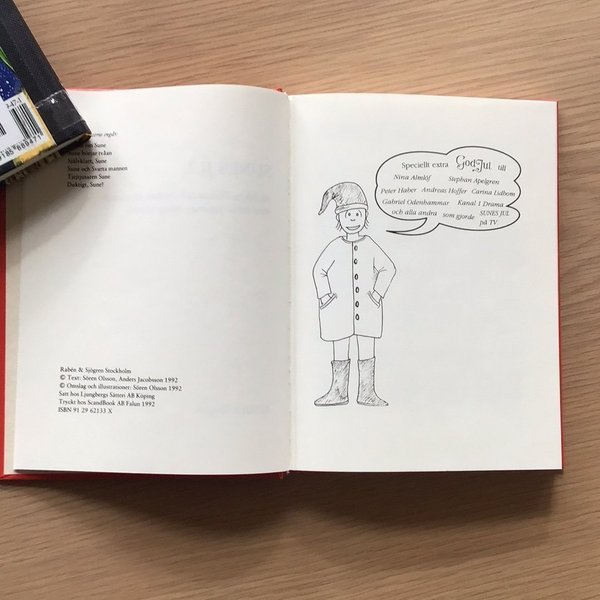 ingår:
Sune
Sune börjar tvåan
Självklart, Sune
Sune och Svarta mannen
Tjejtjusaren Sune
Duktigt, Sune!
Rabén & Sjögren Stockholm
© Text: Sören Olsson, Anders Jacobsson 1992
© Omslag och illustrationer: Sören Olsson 1992
Satt hos Ljungbergs Sätteri AB Köping
Tryckt hos ScandBook AB Falun 1992
ISBN 91 29 62133 X
Speciellt extra God Jul till
Nina Almlöf Stephan Apelgren
Peter Haber Andreas Hoffer Carina Lidbom
Gabriel Odenhammar Kanal 1 Drama
och alla andra som gjorde SUNES JUL
på TV.